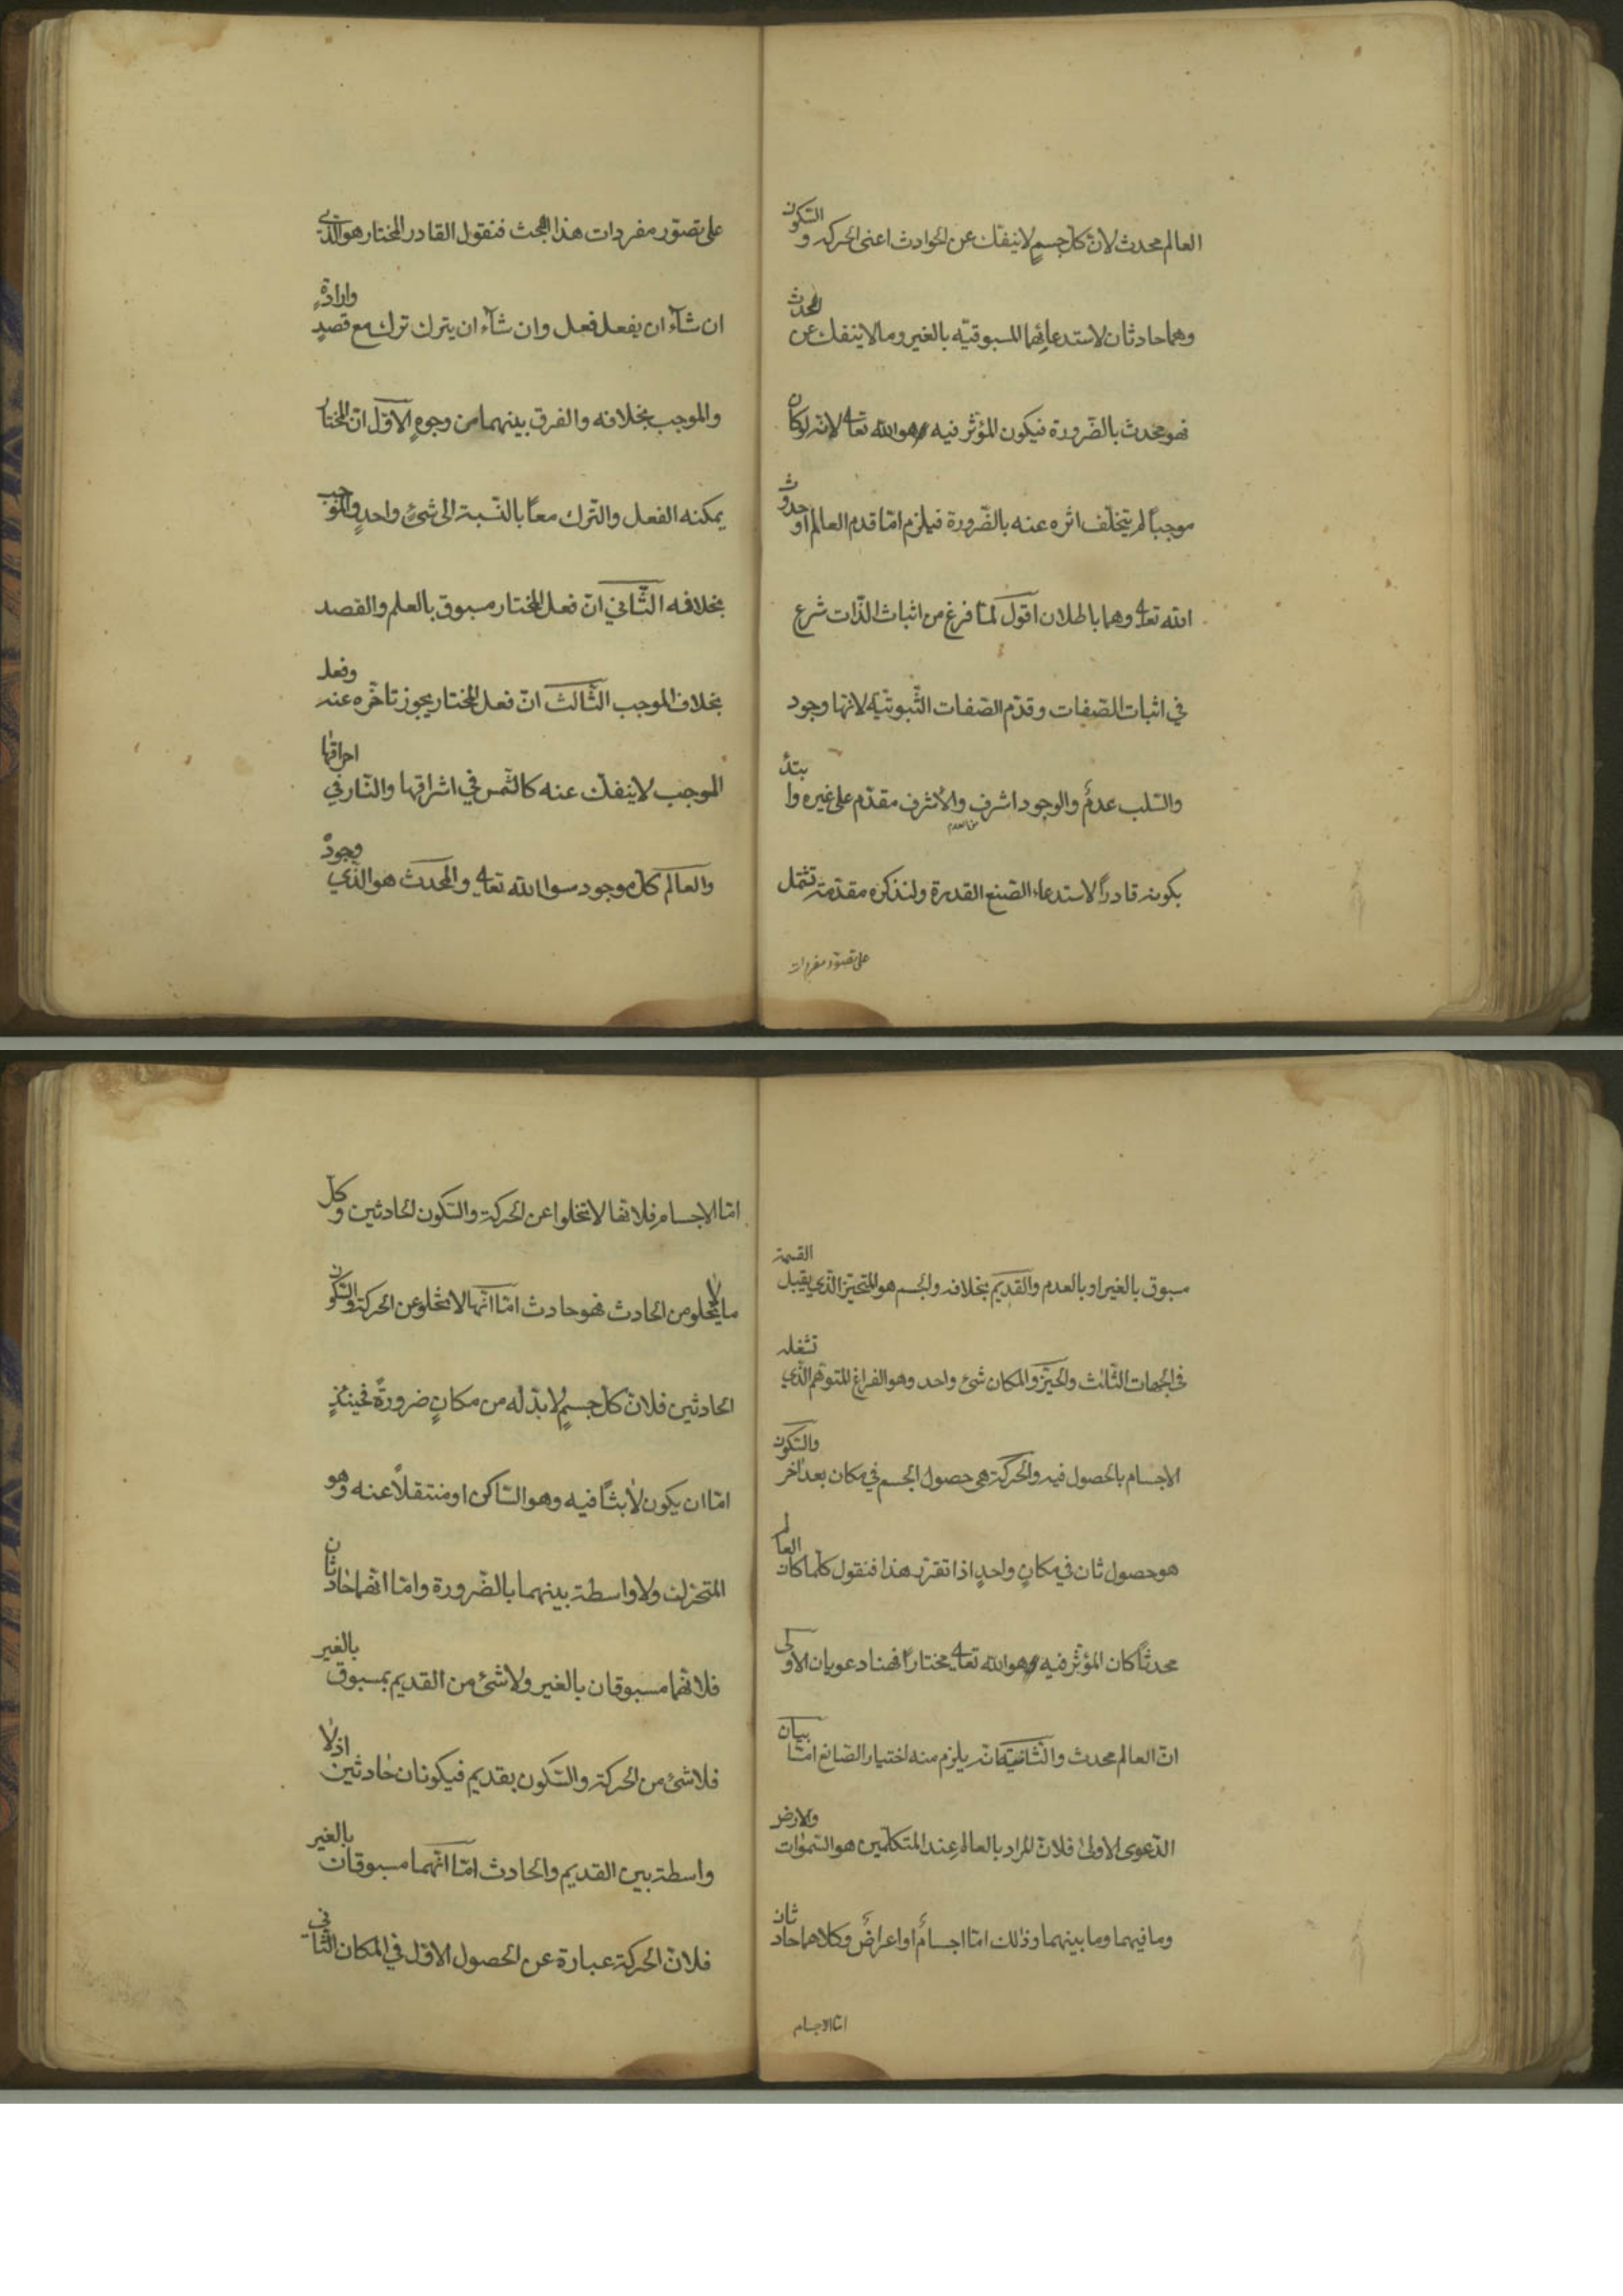 العالم محدث لانّ كلّ جسمٍ لا ينفكّ عن الحوادث اعنى الحركة و السّكون
وهما حادثان لاستدعائهما المسبوقيّة بالغير وما لا ينفك عن المحدث
فهو محدث بالضّرورة فيكون المؤثّر فيه وهو الله تعا لانّه لو كان
موجباً لم يتخلّف اثره عنه بالضّرورة فيلزم امّا قدم العالم او حدوث
الله تعا وهما باطلان اقول لمّا فرغ من اثبات الذّات شرع
في اثبات الصّفات وقدّم الصّفات الثّبوتيّة لانّها وجود
والسّلب عدمٌ والوجود اشرف والاشرف مقدّم على غيره وا بتدأ
من العدم
بكونه قادراً لاستدعاء الصّنع القدرة ولنذكره مقدّمة تشمل
على تصوّر مفردات
على تصوّر مفردات هذا البحث فنقول القادر المختار هو الّذى
ان شآء ان يفعل فعل وان شآء ان يترك ترك مع قصدٍ وارادةٍ
والموجب بخلافه والفرق بينهما من وجوهٍ الاوّل انّ المختار
يمكنه الفعل والتّرك معاً بالنّسبة الى شئٍ واحدٍ والموجب
بخلافه الثّاني انّ فعل المختار مسبوق بالعلم والقصد
بخلاف الموجب الثّالث انّ فعل المختار يجوز تاخّره عنه وفعل
الموجب لا ينفكّ عنه كالشّمس في اشراقها والنّار في احراقها
والعالم كلّ موجود سوا الله تعا والمحدث هو الّذي وجودٌ
مسبوق بالغير او بالعدم والقديم بخلافه والجسم هو المتحيّز الّذي يقبل القسمة
في الجهات الثّلث والحيّز والمكان شئ واحد وهو الفراغ المتوهّم الّذي تشغله
الاجسام بالحصول فيه والحركة هى حصول الجسم في مكان بعد اخر والسّكون
هو حصول ثان في مكانٍ واحدٍ اذا تقرّر هذا فنقول كلّما كان العالم
محدثاً كان المؤثّر فيه وهو الله تعا مختاراً فهنا دعويان الاولى
انّ العالم محدث والثّانية انّه يلزم منه اختيار الصّانع امّا بيان
الدّعوى الاولىٰ فلانّ المراد بالعالم عند المتكلّمين هو السّموات والارض
وما فيهما وما بينهما وذٰلك امّا اجسامٌ او اعراضٌ وكلاهما حادثان
امّا الاجسام
امّا الاجسام فلانّها لا تخلوا عن الحركة والسّكون الحادثين وكلّ
ما لا يخلو من الحادث فهو حادث امّا انّها لا تخلو عن الحركة والسّكون
الحادثين فلانّ كلّ جسمٍ لا بدّ له من مكانٍ ضرورةً فحينئذٍ
امّا ان يكون لابثاً فيه وهو السّاكن او منتقلاً عنه وهو
المتحرّك ولا واسطة بينهما بالضّرورة وامّا انّهما حادثان
فلانّهما مسبوقان بالغير ولا شئ من القديم بمسبوق بالغير
فلا شئ من الحركة والسّكون بقديم فيكونان حادثين اذ لا
واسطة بين القديم والحادث امّا انّهما مسبوقان بالغير
فلانّ الحركة عبارة عن الحصول الاوّل في المكان الثّاني